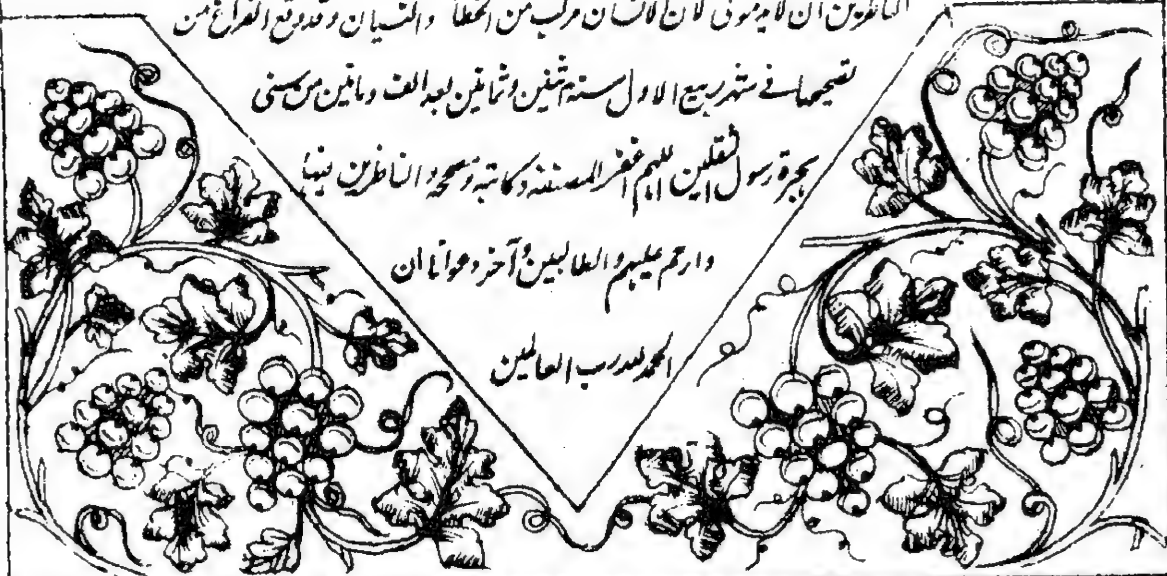 الناظرين ان لا يذمونى لان الانسان مركب من الخطأ والنسيان وقد وقع الفراغ من
تصحيحها فے شهر ربيع الاول سنة اثنين وثمانين بعد الف ومأتين من سنى
هجرة رسول الثقلين اللهم اغفر لمصنفه وكاتبه ومصححه والناظرين فيها
وارحم عليهم والطالبين وآخر دعوانا ان
الحمد لله رب العالمين